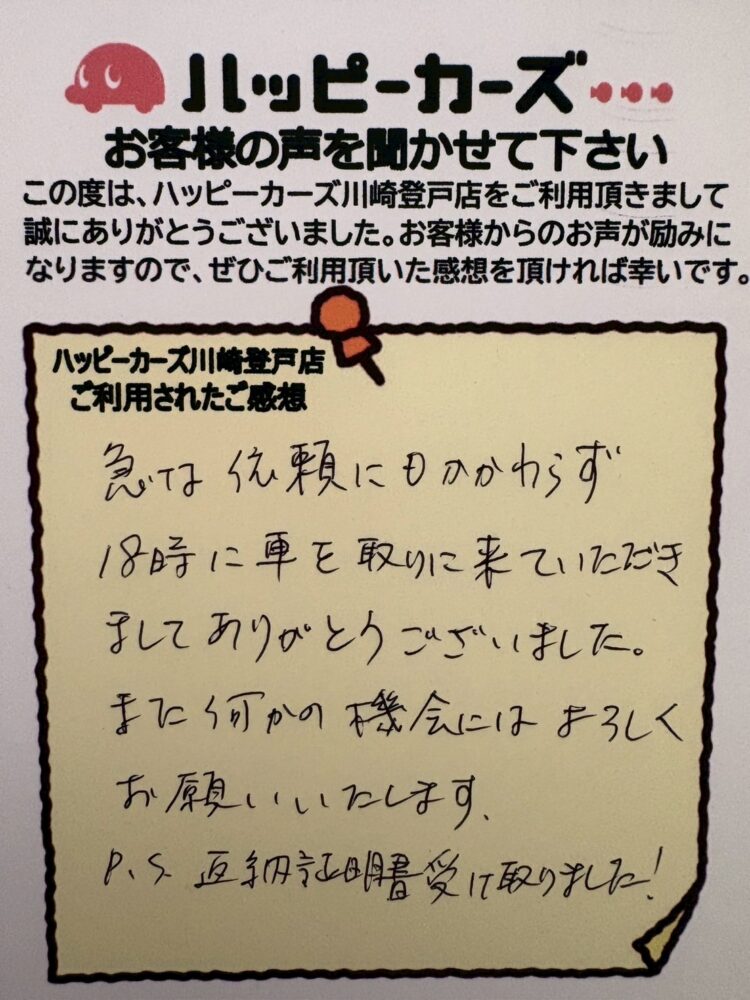 ハッピーカーズ
お客様の声を聞かせて下さい
この度は、ハッピーカーズ川崎登戸店をご利用頂きまして
誠にありがとうございました。お客様からのお声が励みに
なりますので、ぜひご利用頂いた感想を頂ければ幸いです。
ハッピーカーズ川崎登戸店
ご利用されたご感想
急な依頼にもかかわらず
18時に車を取りに来ていただき
ましてありがとうございました。
また何かの機会にはよろしく
お願いいたします。
P.S. 返納証明書受け取りました!